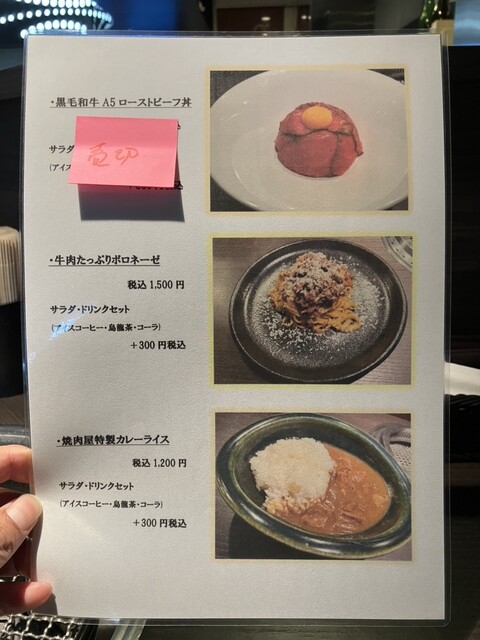 ・黒毛和牛 A5 ローストビーフ丼
売切
サラダ
(アイス
・牛肉たっぷりボロネーゼ
税込 1,500 円
サラダ・ドリンクセット
(アイスコーヒー・烏龍茶・コーラ)
+300 円税込
・焼肉屋特製カレーライス
税込 1,200 円
サラダ・ドリンクセット
(アイスコーヒー・烏龍茶・コーラ)
+300 円税込